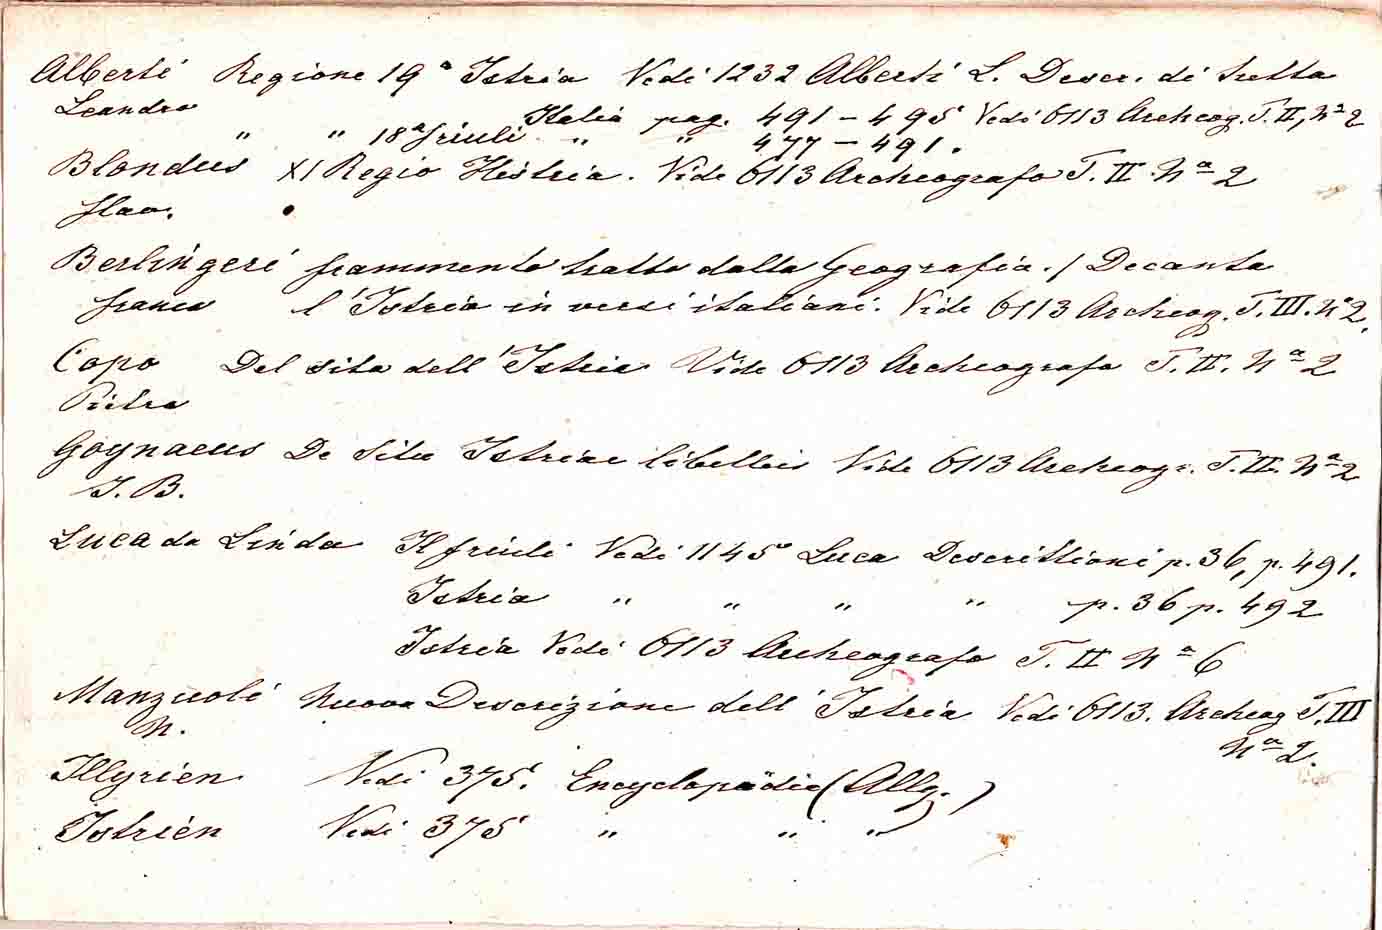 Alberti Regione 19ª Istria Vedi 1232 Alberti L. Descr. di tutta
Leandro Italia pag. 491 – 495 Vedi 6113 Archeog. T. II, Nº 2
" " 18ª Friuli " " 477 – 491.
Blondus XI Regio Histria. Vide 6113 Archeografo T. II. Nª 2
Flav.
Berlingeri frammento tratto dalla Geografia. / Decanta
Franco l'Istria in versi italiani. Vide 6113 Archeog. T. III. Nº 2.
Copo Del sito dell'Istria Vide 6113 Archeografo T. II. Nª 2
Pietro
Goynaeus De Situ Istriae libellus Vide 6113 Archeogr. T. II. Nª 2
J. B.
Luca da Linda Il friuli Vedi 1145 Luca Descrittioni p. 36, p. 491.
Istria " " " " p. 36 p. 492
Istria Vedi 6113 Archeografo T. II Nª 6
Manzuoli Nuova Descrizione dell'Istria Vedi 6113. Archeog T. III
N. Nª 2.
Illyrien Vedi 375. Encyclopädie (Allg.)
Istrien Vedi 375 " " "